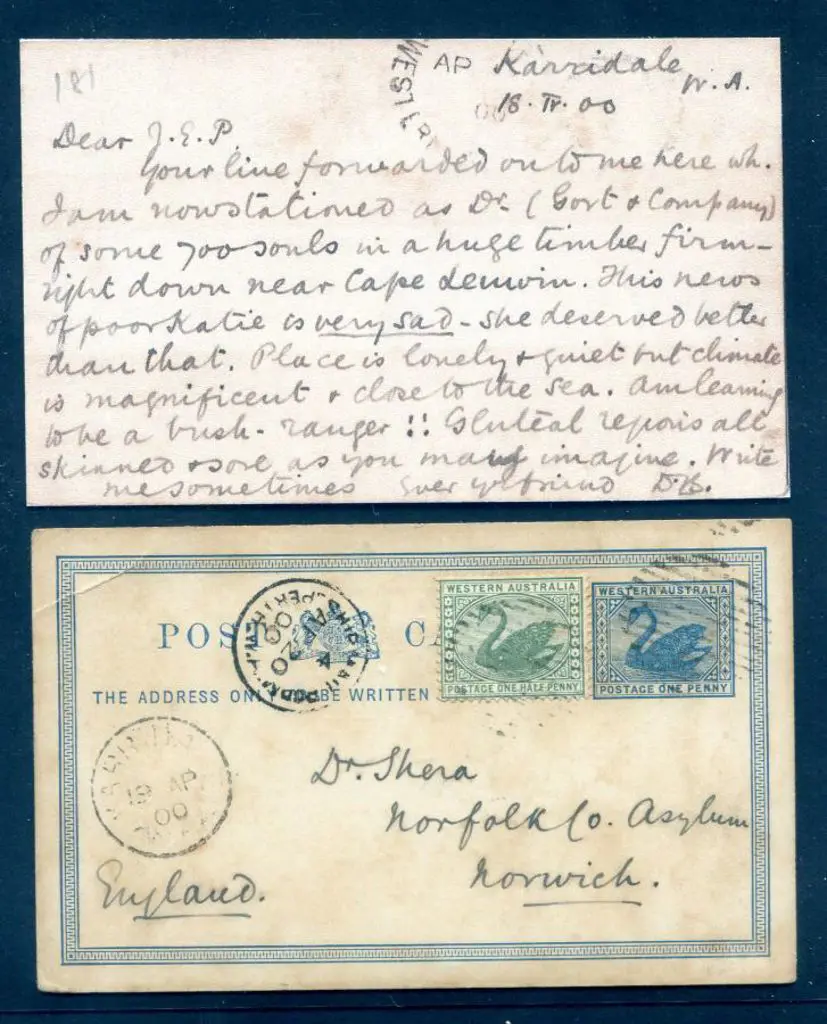 181
WESTER
AP
00
Karridale
W.A.
18.IV.00
Dear J.E.P.
Your line forwarded on to me here wh.
I am now stationed as Dr. (Govt & Company)
of some 700 souls in a huge timber firm -
right down near Cape Leuwin. This news
of poor Katie is very sad - she deserved better
than that. Place is lonely & quiet but climate
is magnificent & close to the sea. Am learning
to be a bush-ranger !! Gluteal regions all
skinned & sore as you may imagine. Write
me sometimes Ever yr friend D.H.
POST CA
THE ADDRESS ONL BE WRITTEN
WESTERN AUSTRALIA
POSTAGE ONE HALF PENNY
WESTERN AUSTRALIA
POSTAGE ONE PENNY
4
AP 20
00
19 AP
00
Dr. Shera
Norfolk Co. Asylum
Norwich.
England.